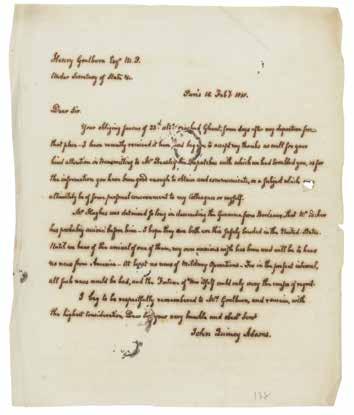 Henry Goulburn Esqr M.P.
Under Secretary of State &c.
Paris 12. Feby 1815.
Dear Sir.
Your obliging favour of 23d ulto reached Ghent, some days after my departure from
that place - I have recently received it here, and beg you to accept my thanks as well for your
kind attention in transmitting to Mr the dispatches with which we had troubled you, as for
the information you have been good enough to obtain and communicate, on a subject which
ultimately be of some personal convenience to my colleagues or myself.
Mr Hughes was detained so long in descending the Garonne from Bordeaux, that Mr
has probably arrived before him - I hope they are both ere this safely landed in the United States.
Until we hear of the arrival of one of them, my own anxious wish has been and will be to hear
no news from America - At least no news of Military Operations - For in the present interval,
all such news would be bad, and the Fortune of War itself could only vary the causes of regret.
I beg to be respectfully remembered to Mrs Goulburn, and remain, with
the highest consideration Dear Sir, your very humble and obedt Servt
John Quincy Adams.